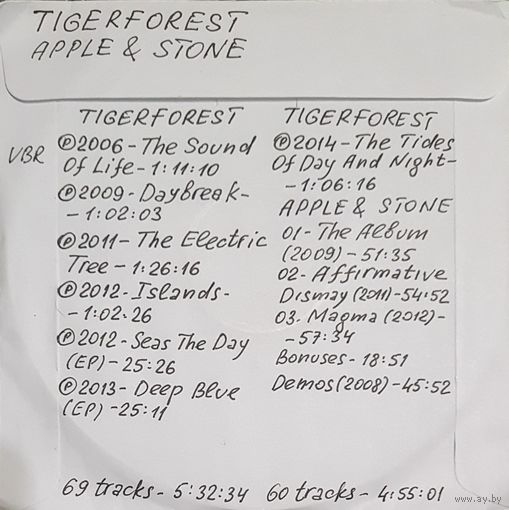 TIGERFOREST
APPLE & STONE
VBR
TIGERFOREST
Ⓟ2006-The Sound
Of Life-1:11:10
Ⓟ2009-DayBreak-
-1:02:03
Ⓟ2011-The Electric
Tree-1:26:16
Ⓟ2012-Islands-
-1:02:26
Ⓟ2012-Seas The Day
(EP)-25:26
Ⓟ2013-Deep Blue
(EP)-25:11
69 tracks-5:32:34
TIGERFOREST
Ⓟ2014-The Tides
Of Day And Night-
-1:06:16
APPLE & STONE
01-The Album
(2009)-51:35
02-Affirmative
Dismay (2011)-54:52
03. Magma (2012)-
-57:34
Bonuses-18:51
Demos(2008)-45:52
60 tracks-4:55:01
www.ay.by